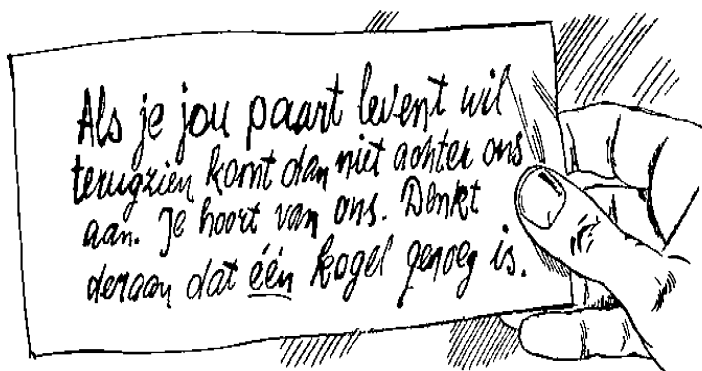 Als je jou paart levent wil
terugzien komt dan niet achter ons
aan. Je hoort van ons. Denkt
deraan dat één kogel genoeg is.